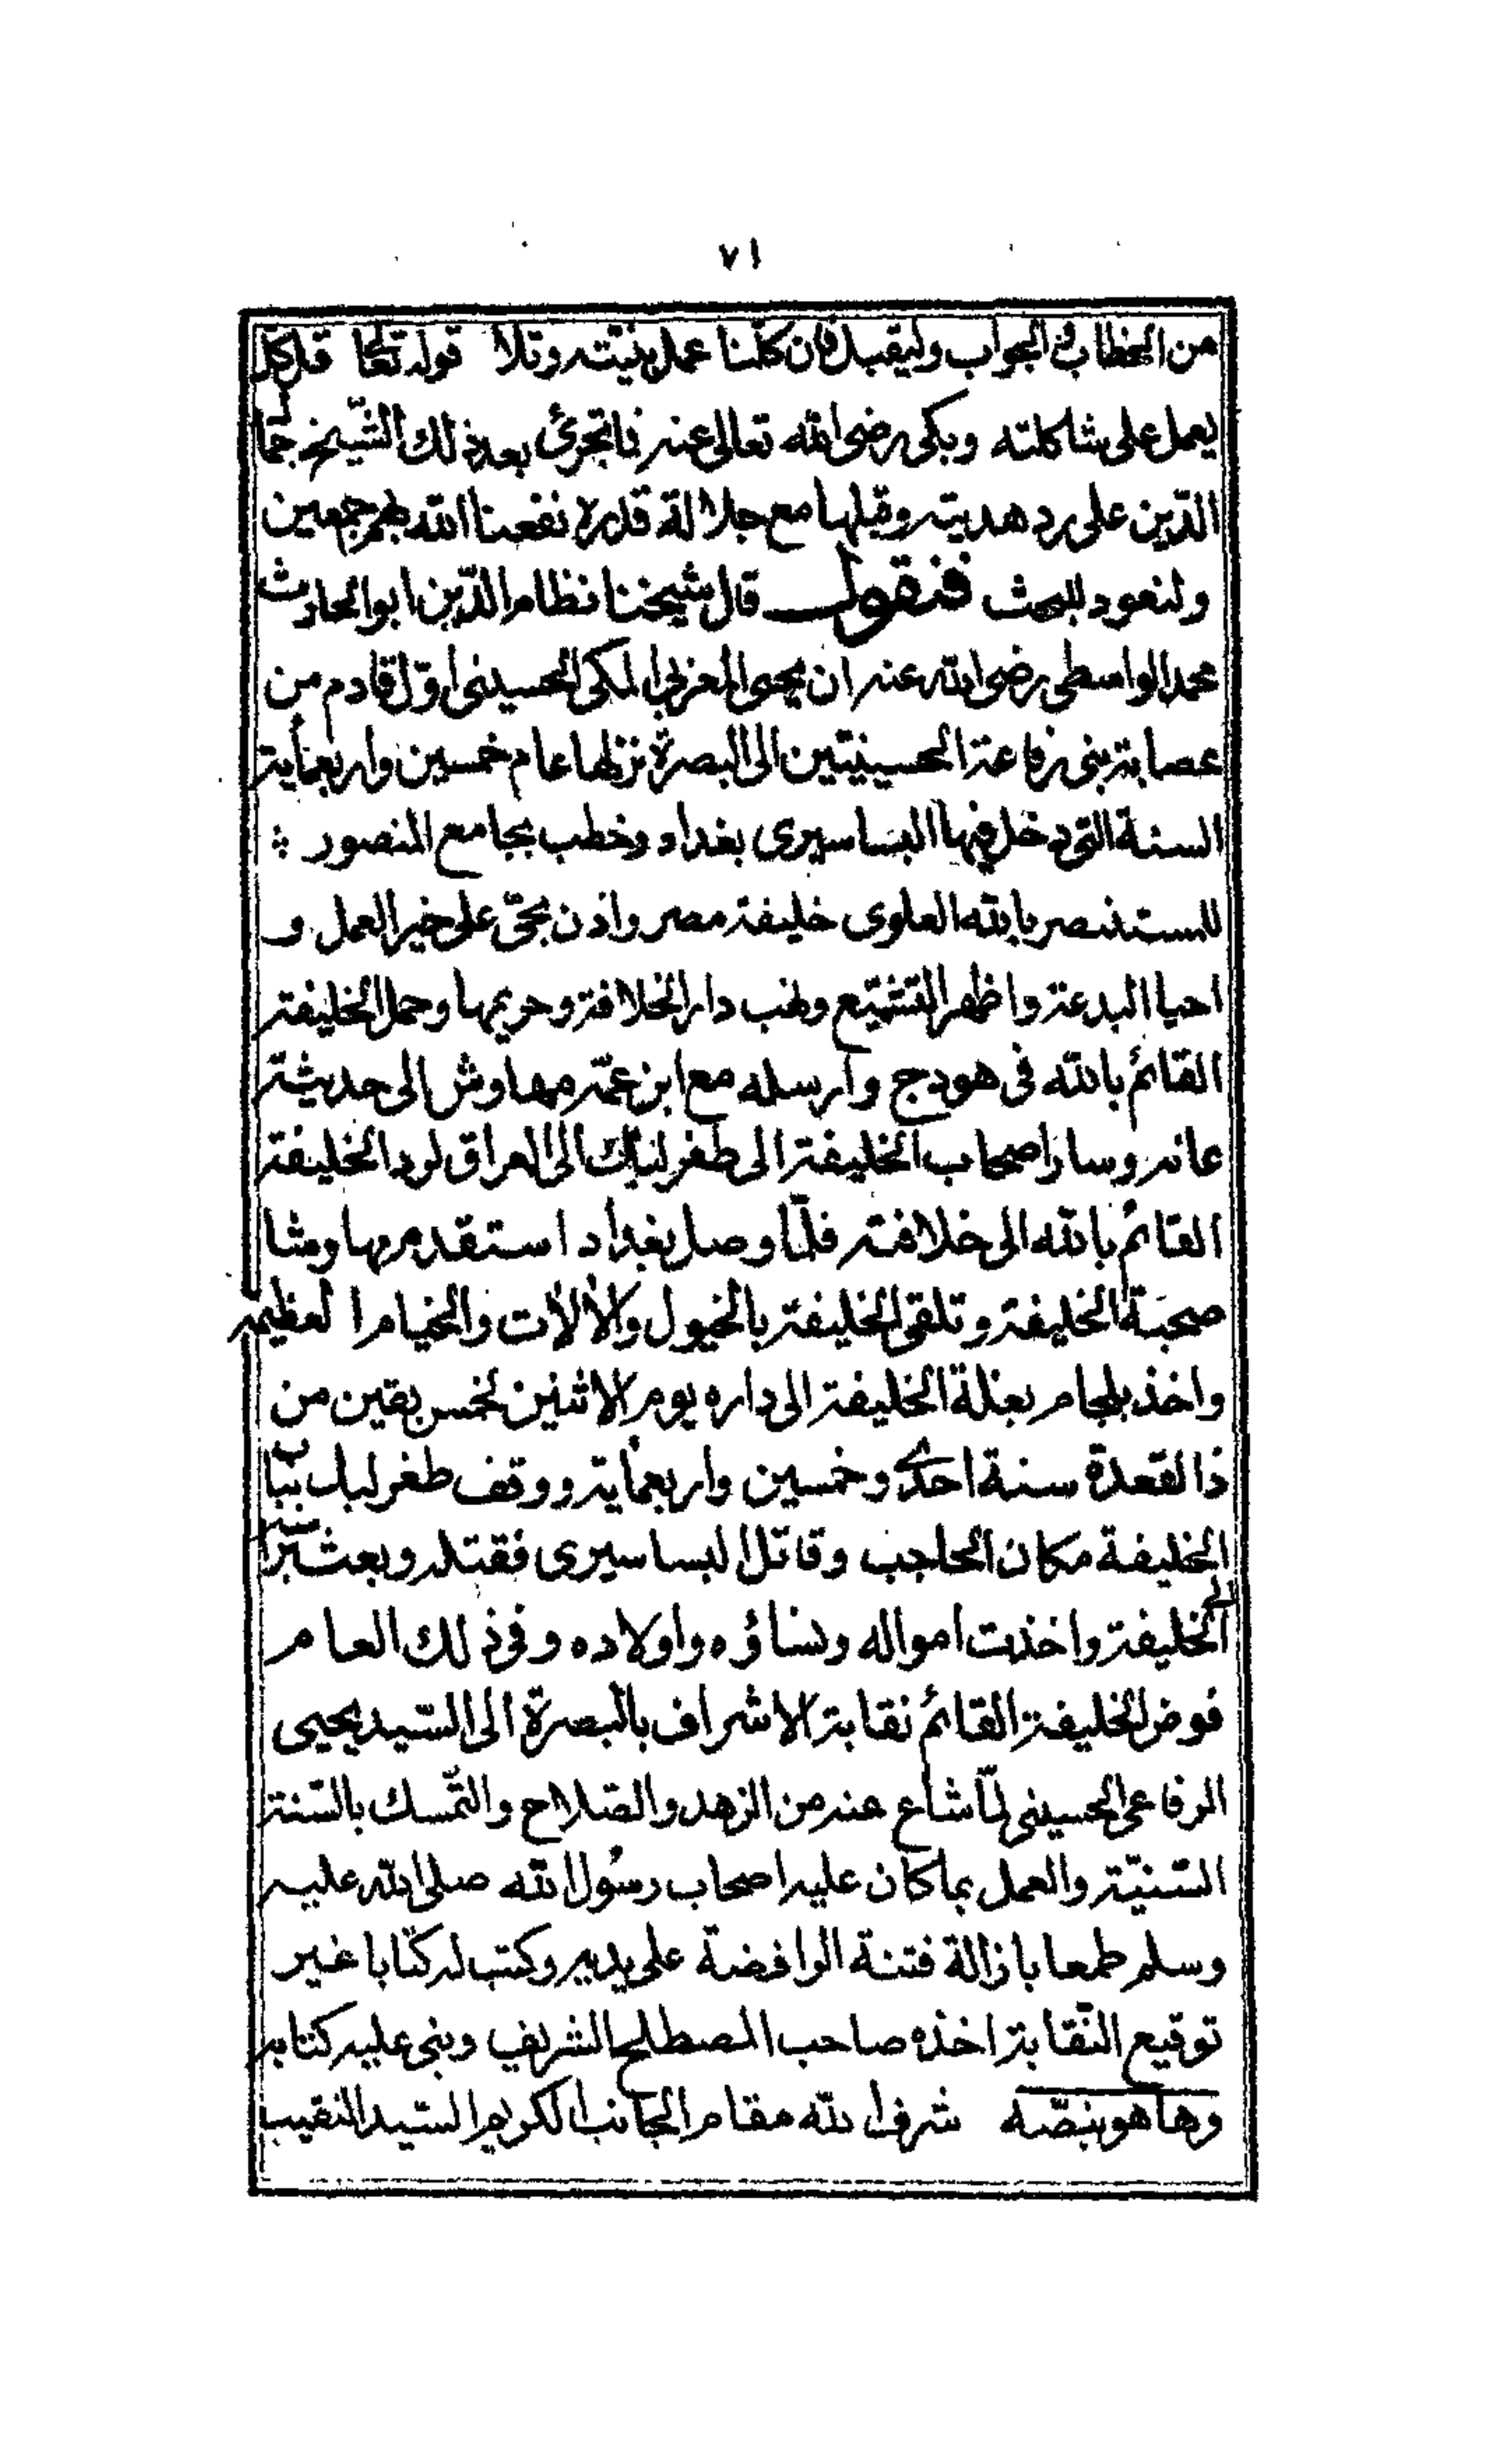 ٧١
من الخطاب والجواب وليقبل فان كلنا عمل بنيته وتلا قوله تعالى قل كل
يعمل على شاكلته وبكى رضى الله تعالى عنه فما تجرئ بعد ذلك الشيخ جمال
الدّين على رد هديته وقبلها مع جلالة قدره نفعنا الله بهم اجمعين
ولنعود للبحث فنقول قال شيخنا نظام الدّين ابو الحارث
محمد الواسطى رضى الله عنه ان يحيى المغربى المكى الحسينى اوّل قادم من
عصابة بنى رفاعة الحسينيّين الى البصرة نزلها عام خمسين واربعمأية
السنة التى دخل فيها البساسيرى بغداد وخطب بجامع المنصور
للمستنصر بالله العلوى خليفة مصر واذن بحىّ على خير العمل و
احيا البدعة واظهر التشيّع ونهب دار الخلافة وحريمها وحمل الخليفة
القائم بالله فى هودج وارسله مع ابن عمّه مهاوش الى حديثة
عانه وسار اصحاب الخليفة الى طغرلبك الى العراق لرد الخليفة
القائم بالله الى خلافته فلمّا وصل بغداد استقدم مهاوشا
صحبة الخليفة وتلقى الخليفة بالخيول والألات والخيام العظيمه
واخذ بلجام بغلة الخليفة الى داره يوم الاثنين لخمس بقين من
ذا لقعدة سنة احدى وخمسين واربعمأية ووقف طغرلبك بباب
الخليفة مكان الحاجب وقاتل البساسيرى فقتله وبعث برأسه الى
الخليفة واخذت امواله ونساؤه واولاده وفى ذلك العام
فوض الخليفة القائم نقابة الاشراف بالبصرة الى السّيد يحيى
الرفاعى الحسينى لمّا شاع عنه من الزهد والصّلاح والتّمسك بالسّنة
السّنيّة والعمل بما كان عليه اصحاب رسول الله صلى الله عليه
وسلم طمعا بازالة فتنة الرافضة على يديه وكتب له كتابا غير
توقيع النّقابة اخذه صاحب المصطلح الشريف وبنى عليه كتابه
وها هو بنصّه شرف الله مقام الجانب الكريم السّيد النقيب